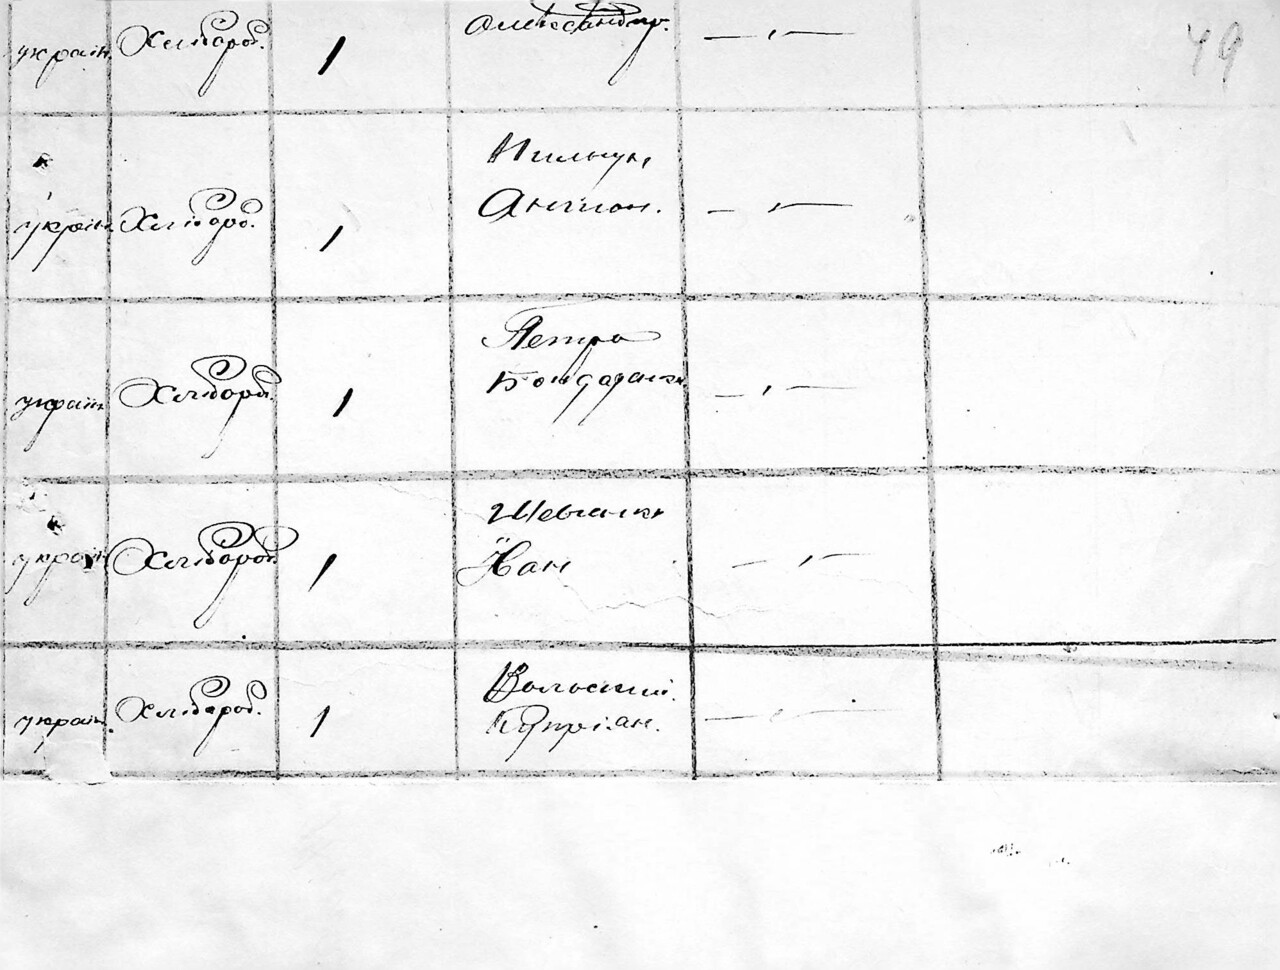 україн. Хлібороб. 1 Олександр. — „ —
49
україн. Хлібороб. 1 Антон. — „ —
україн. Хлібороб. 1 Петро
Бондаренк — „ —
україн. Хлібороб. 1 Шевченк
Іван — „ —
україн. Хлібороб. 1 Волоский.
Купріян. — „ —